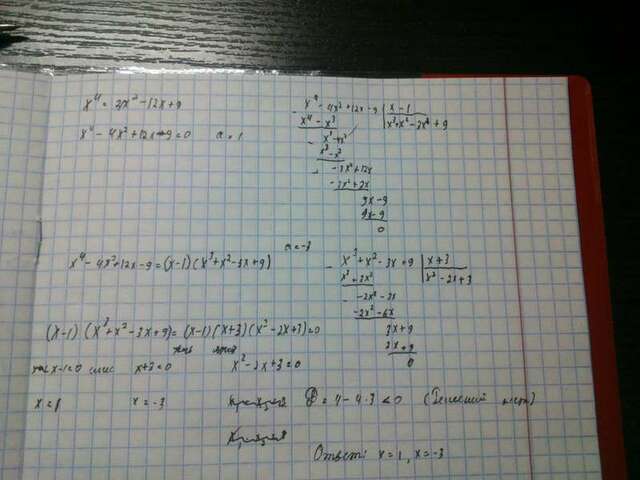 x⁴ = 3x² - 12x + 9
x⁴ - 4x² + 12x - 9 = 0 a = 1
x⁴ - 4x² + 12x - 9 | x - 1
x⁴ - x³ | x³ + x² - 3x + 9
x³ - 4x²
x³ - x²
-3x² + 12x
-3x² + 3x
9x - 9
9x - 9
0
x⁴ - 4x² + 12x - 9 = (x-1)(x³ + x² - 3x + 9) a = -3
x³ + x² - 3x + 9 | x + 3
x³ + 3x² | x² - 2x + 3
-2x² - 3x
-2x² - 6x
3x + 9
3x + 9
0
(x-1)(x³ + x² - 3x + 9) = (x-1)(x+3)(x² - 2x + 3) = 0
x - 1 = 0 или x + 3 = 0 x² - 2x + 3 = 0
x = 1 x = -3 D = 4 - 4·3 < 0
Ответ: x = 1, x = -3